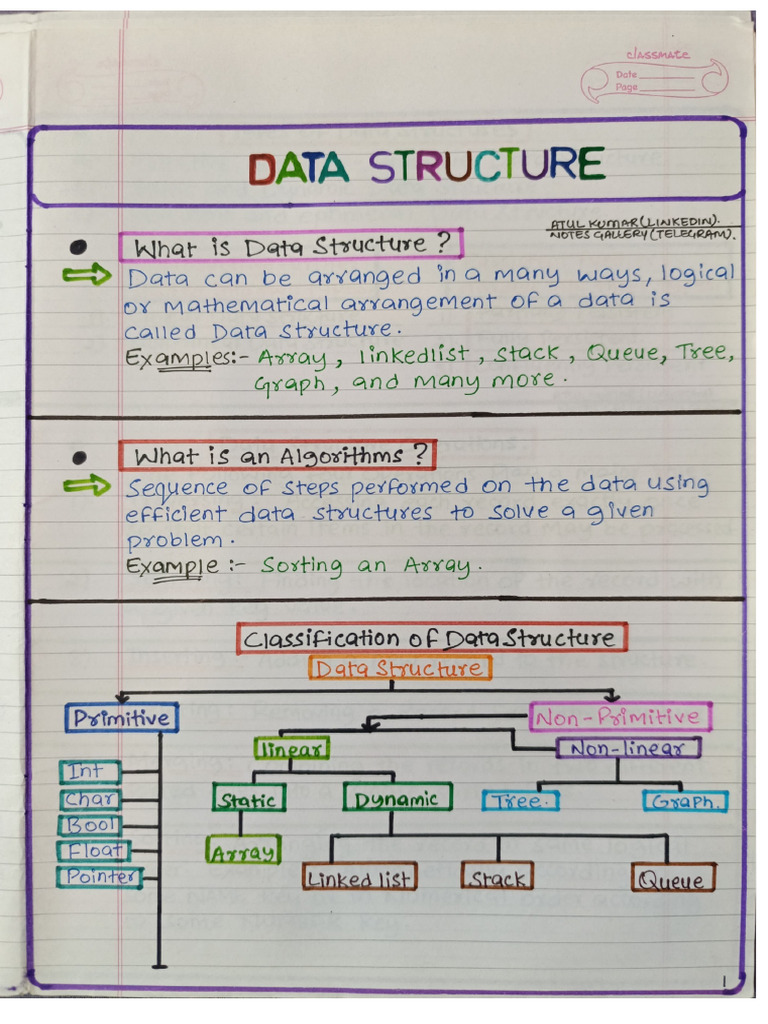 classmate
Date
Page
DATA STRUCTURE
ATUL KUMAR(LINKEDIN).
NOTES GALLERY(TELEGRAM).
What is Data Structure?
Data can be arranged in a many ways, logical
or mathematical arrangement of a data is
called Data structure.
Examples:- Array, linkedlist, stack, Queue, Tree,
Graph, and many more.
What is an Algorithms?
Sequence of steps performed on the data using
efficient data structures to solve a given
problem.
Example :- Sorting an Array.
Classification of Data Structure
Data Structure
Primitive
Non-Primitive
linear
Non-linear
Int
Char
Bool
Float
Pointer
Static
Dynamic
Tree.
Graph.
Array
Linked list
Stack
Queue
1